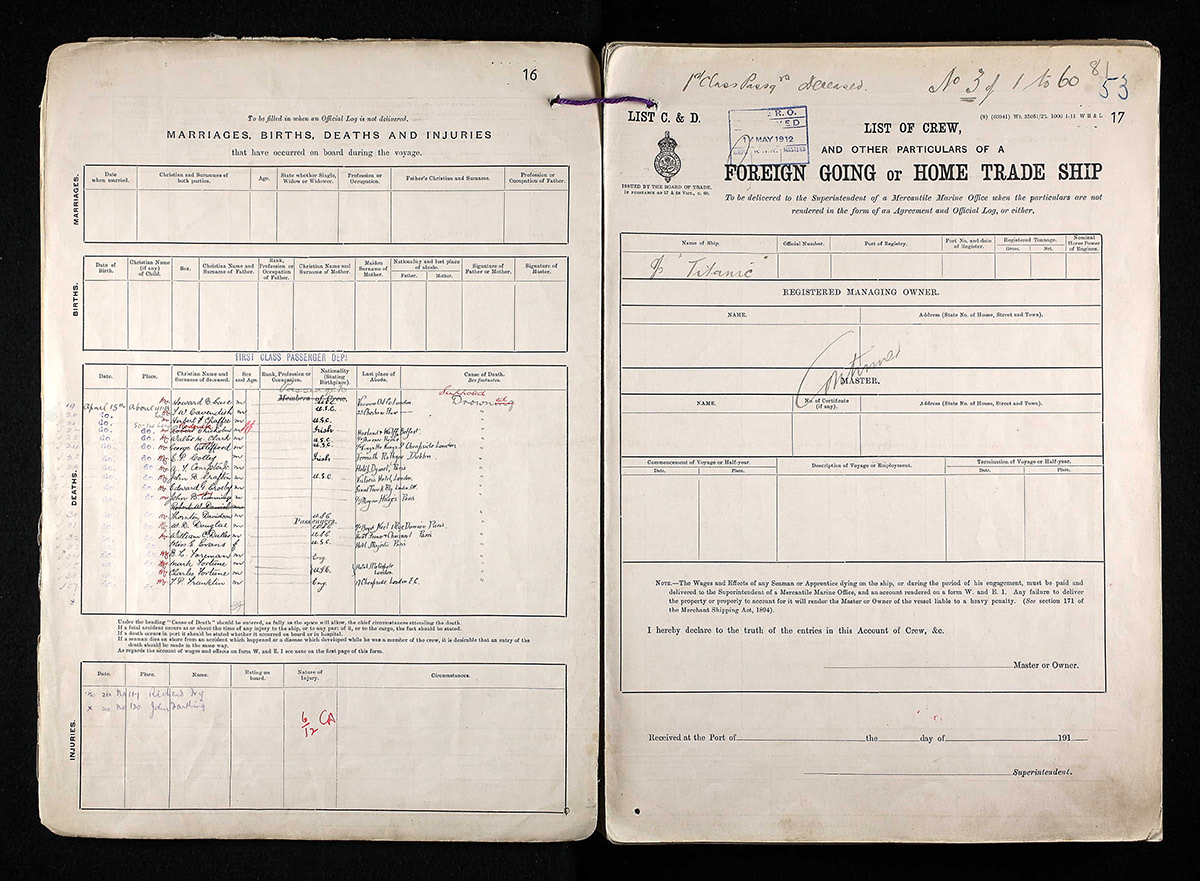 16
To be filled in when an Official Log is not delivered.
MARRIAGES, BIRTHS, DEATHS AND INJURIES
that have occurred on board during the voyage.
MARRIAGES.
Date when married. Christian and Surnames of both parties. Age. State whether Single, Widow or Widower. Profession or Occupation. Father's Christian and Surname. Profession or Occupation of Father.
BIRTHS.
Date of Birth. Christian Name (if any) of Child. Sex. Christian Name and Surname of Father. Rank, Profession or Occupation of Father. Christian Name and Surname of Mother. Maiden Surname of Mother. Nationality and last place of abode. Father. Mother. Signature of Father or Mother. Signature of Master.
FIRST CLASS PASSENGER DEPT
DEATHS.
Date. Place. Christian Name and Surname of deceased. Sex and Age. Rank, Profession or Occupation. Nationality (Stating Birthplace). Last place of Abode. Cause of Death.
See footnotes.
Passengers
Members of Crew.
Supposed
Drowning
April 15th About 41.16 Mr Howard B. Case m U.S.C.
T.W. Cavendish m U.S.C.
Herbert F. Chaffee m U.S.C.
Chisholm m Irish Harland & Wolff, Belfast
Mr Walter M. Clark m U.S.C.
Mr George m U.S.C. Cheapside London
Mr E.P. Colley m Irish Dublin
Mr A. m Paris
Mr John B. m U.S.C. Victoria Hotel, London
Mr Edward G. Crosby m
Mr John B. Cummings m Paris
Mr Thornton Davidson m U.S.C.
Passengers.
Mr W.D. Douglas m Paris
Mr William C. Dulles m U.S.C. Paris
Miss E. Evans f U.S.C. Hotel Majestic Paris
Mr B.L. Foreman m Eng
Mr Mark Fortune m
Mr Charles Fortune m London
Mr T.P. Franklin m Eng. Cheapside London E.C.
Under the heading "Cause of Death" should be entered, as fully as the space will allow, the chief circumstances attending the death.
If a fatal accident occurs at or about the time of any injury to the ship, or to any part of it, or to the cargo, the fact should be stated.
If a death occurs in port it should be stated whether it occurred on board or in hospital.
If a seaman dies on shore from an accident which happened or a disease which developed while he was a member of the crew, it is desirable that an entry of the
death should be made in the same way.
As regards the account of wages and effects on form W. and E. 1 see note on the first page of this form.
INJURIES.
Date. Place. Name. Rating on board. Nature of Injury. Circumstances.
see No 119 Richard
see No 120 John Farthing
6/12 CA
1st Class Passgrs Deceased. No 3 of 1 to 60
53
LIST C. & D.
R.O.
MAY 1912
(8) 1000 1-11 W B & L
17
ISSUED BY THE BOARD OF TRADE.
LIST OF CREW,
AND OTHER PARTICULARS OF A
FOREIGN GOING or HOME TRADE SHIP
To be delivered to the Superintendent of a Mercantile Marine Office when the particulars are not
rendered in the form of an Agreement and Official Log, or either.
Name of Ship. Official Number. Port of Registry. Port No. and date of Register. Registered Tonnage. Gross. Net. Nominal Horse Power of Engines.
"Titanic"
REGISTERED MANAGING OWNER.
NAME. Address (State No. of House, Street and Town).
MASTER.
NAME. No. of Certificate (if any). Address (State No. of House, Street and Town).
Commencement of Voyage or Half-year. Description of Voyage or Employment. Termination of Voyage or Half-year.
Date. Place. Date. Place.
NOTE.—The Wages and Effects of any Seaman or Apprentice dying on the ship, or during the period of his engagement, must be paid and
delivered to the Superintendent of a Mercantile Marine Office, and an account rendered on a form W. and E. 1. Any failure to deliver
the property or properly to account for it will render the Master or Owner of the vessel liable to a heavy penalty. (See section 171 of
the Merchant Shipping Act, 1894).
I hereby declare to the truth of the entries in this Account of Crew, &c.
Master or Owner.
Received at the Port of the day of 191
Superintendent.